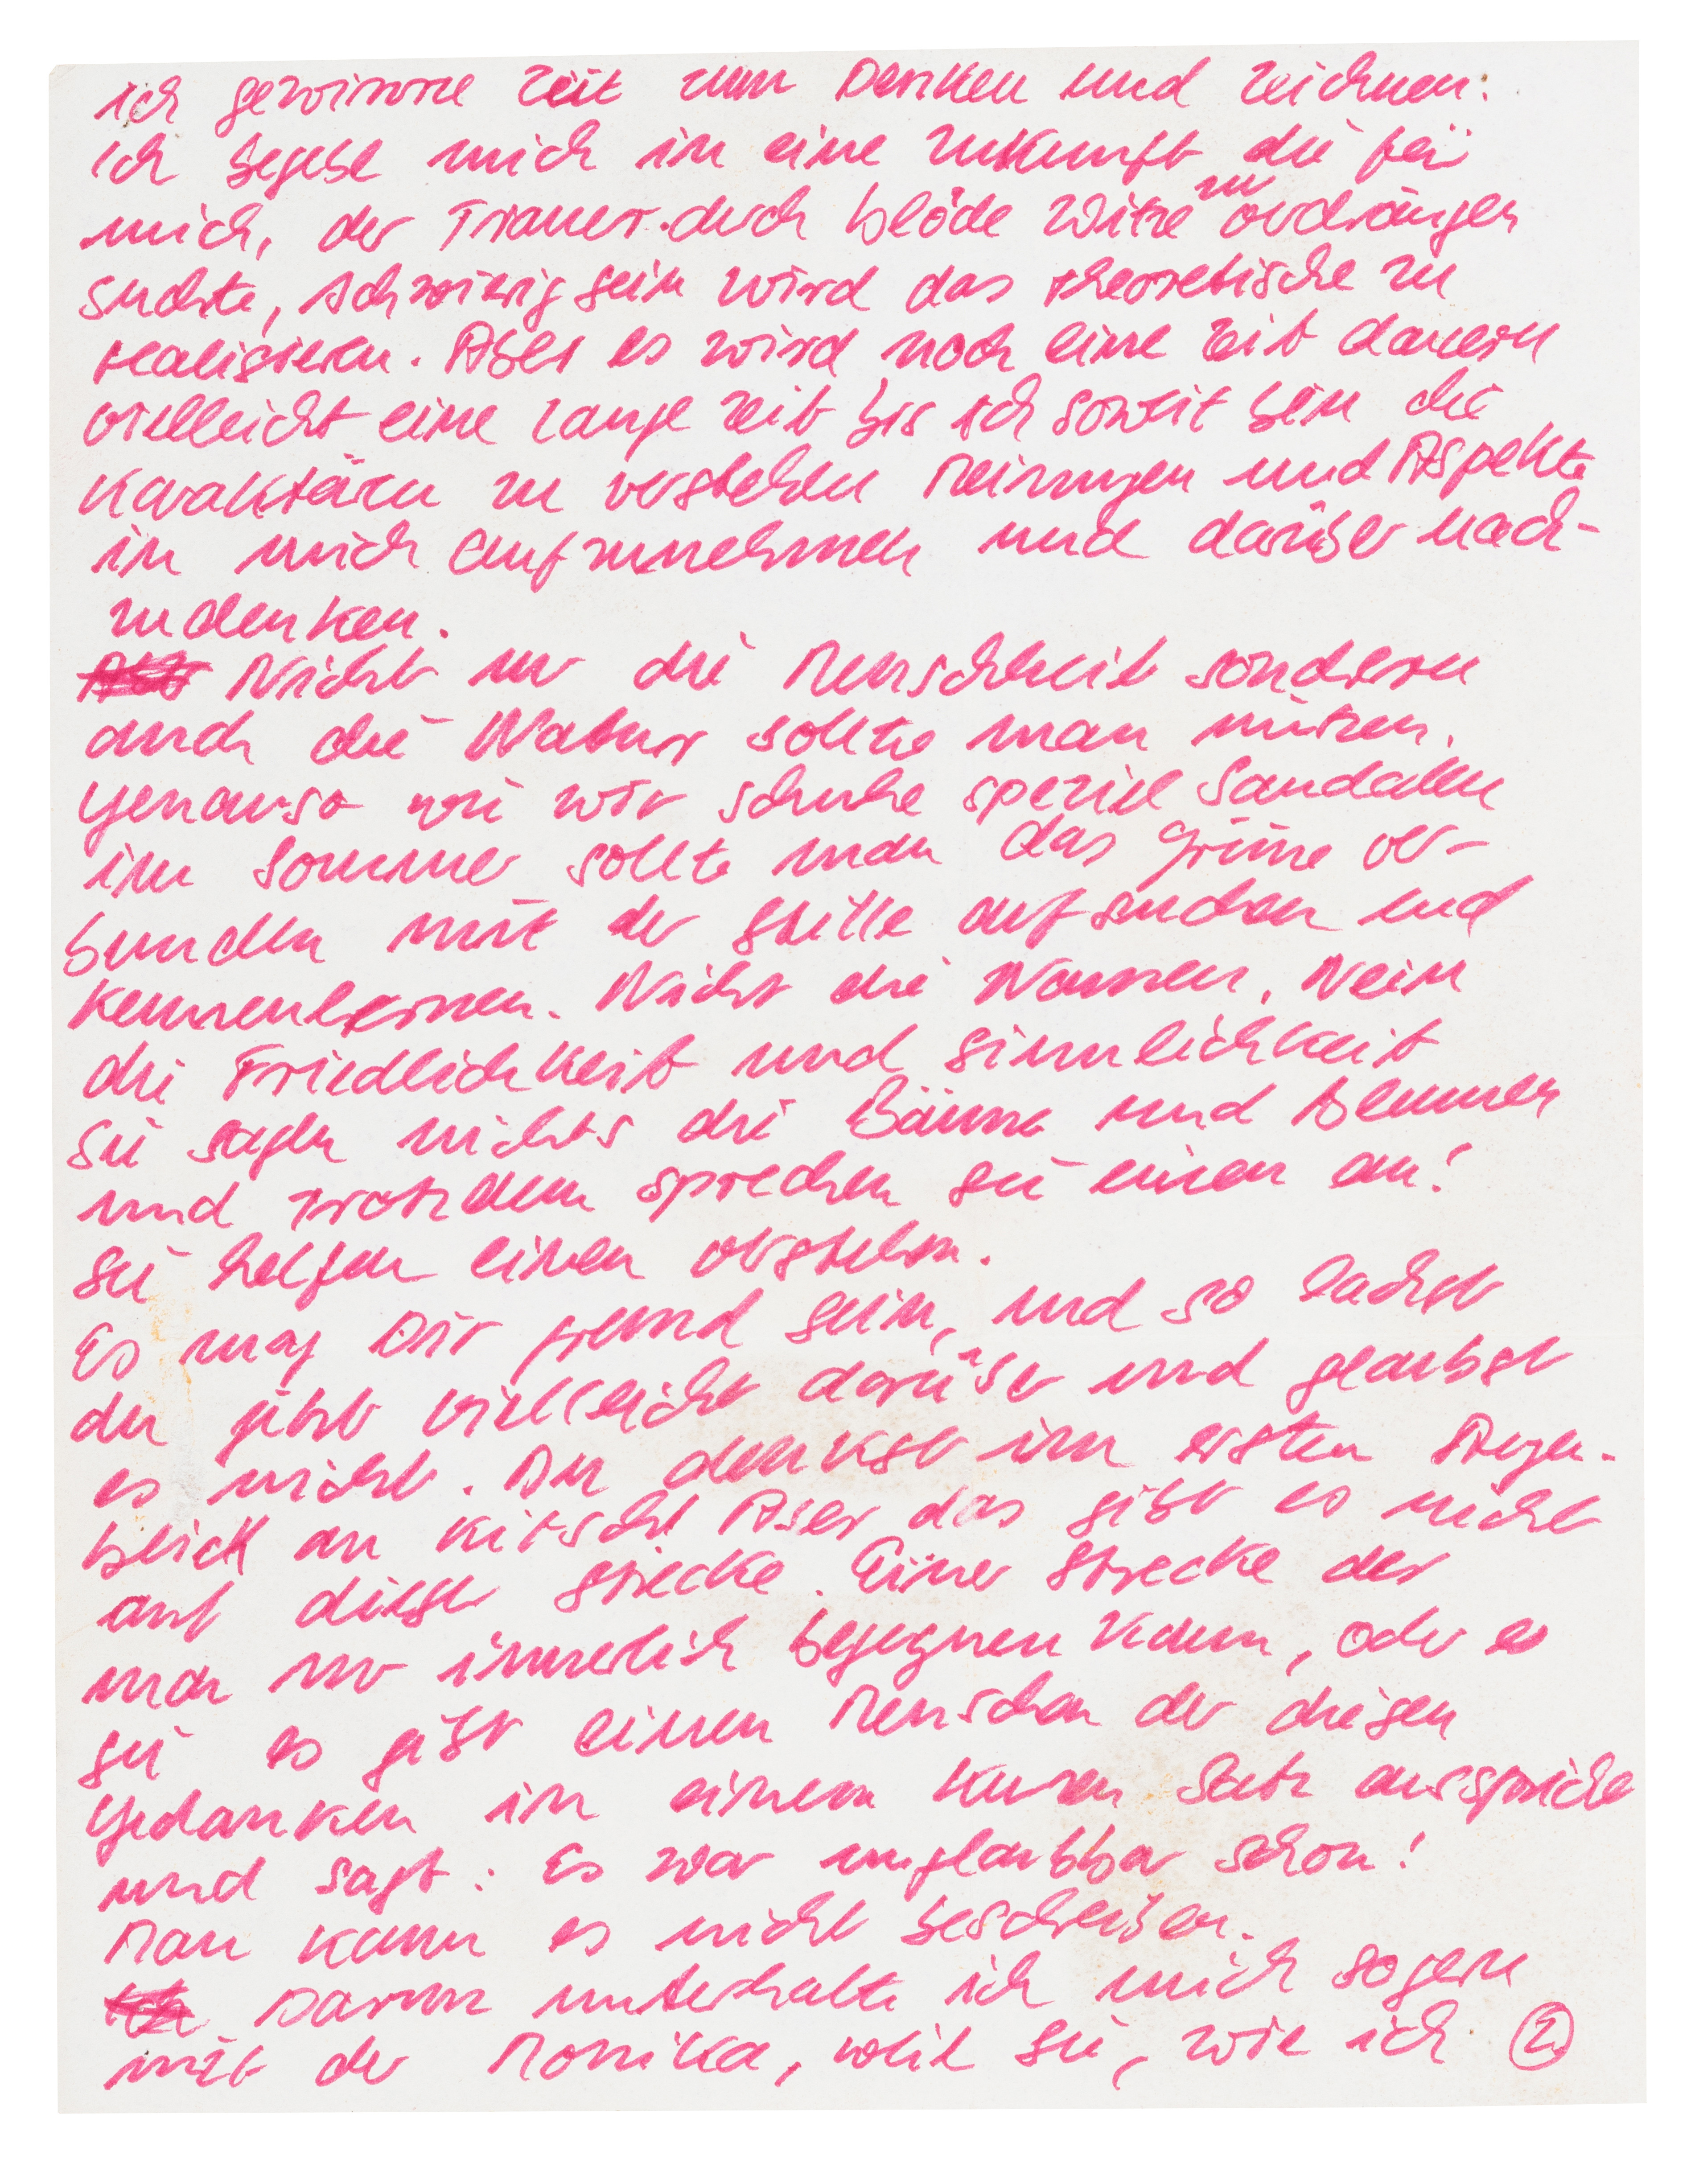 ich gewinne Zeit zum Denken und Zeichnen.
Ich begebe mich in eine Zukunft die für
mich, der Trauer durch blöde Witze zu verdrängen
suchte, schwierig sein wird das theoretische zu
realisieren. Aber es wird noch eine Zeit dauern
vielleicht eine lange Zeit bis ich soweit bin die
Karaktären zu verstehen Meinungen und Aspekte
in mich aufzunehmen und darüber nach-
zudenken.
Nicht nur die Menschheit sondern
auch die Natur sollte man nützen.
Genauso wie wir Schuhe speziel Sandallen
im Sommer sollte man das Grüne ver-
bunden mit der Stille aufsuchen und
kennenlernen. Nicht die Namen, Nein
die Friedlichkeit und Sinnlichkeit
Sie sagen nichts die Bäume und Blumen
und trotzdem sprechen sie einen an!
Sie helfen einen verstehen.
Es mag Dir fremd sein, und so lachst
du jetzt vielleicht darüber und glaubst
es nicht. Du denkst im ersten Augen-
blick an Kitsch! Aber das gibt es nicht
auf dieser Strecke. Einer Strecke der
man nur innerlich begegnen kann, oder es
sei es gibt einen Menschen der diesen
Gedanken in einem kurzen Satz ausspricht
und sagt: Es war unglaubbar schön!
Man kann es nicht beschreiben.
Darum unterhalte ich mich so gern
mit der Monika, weil sie, wie ich
2.